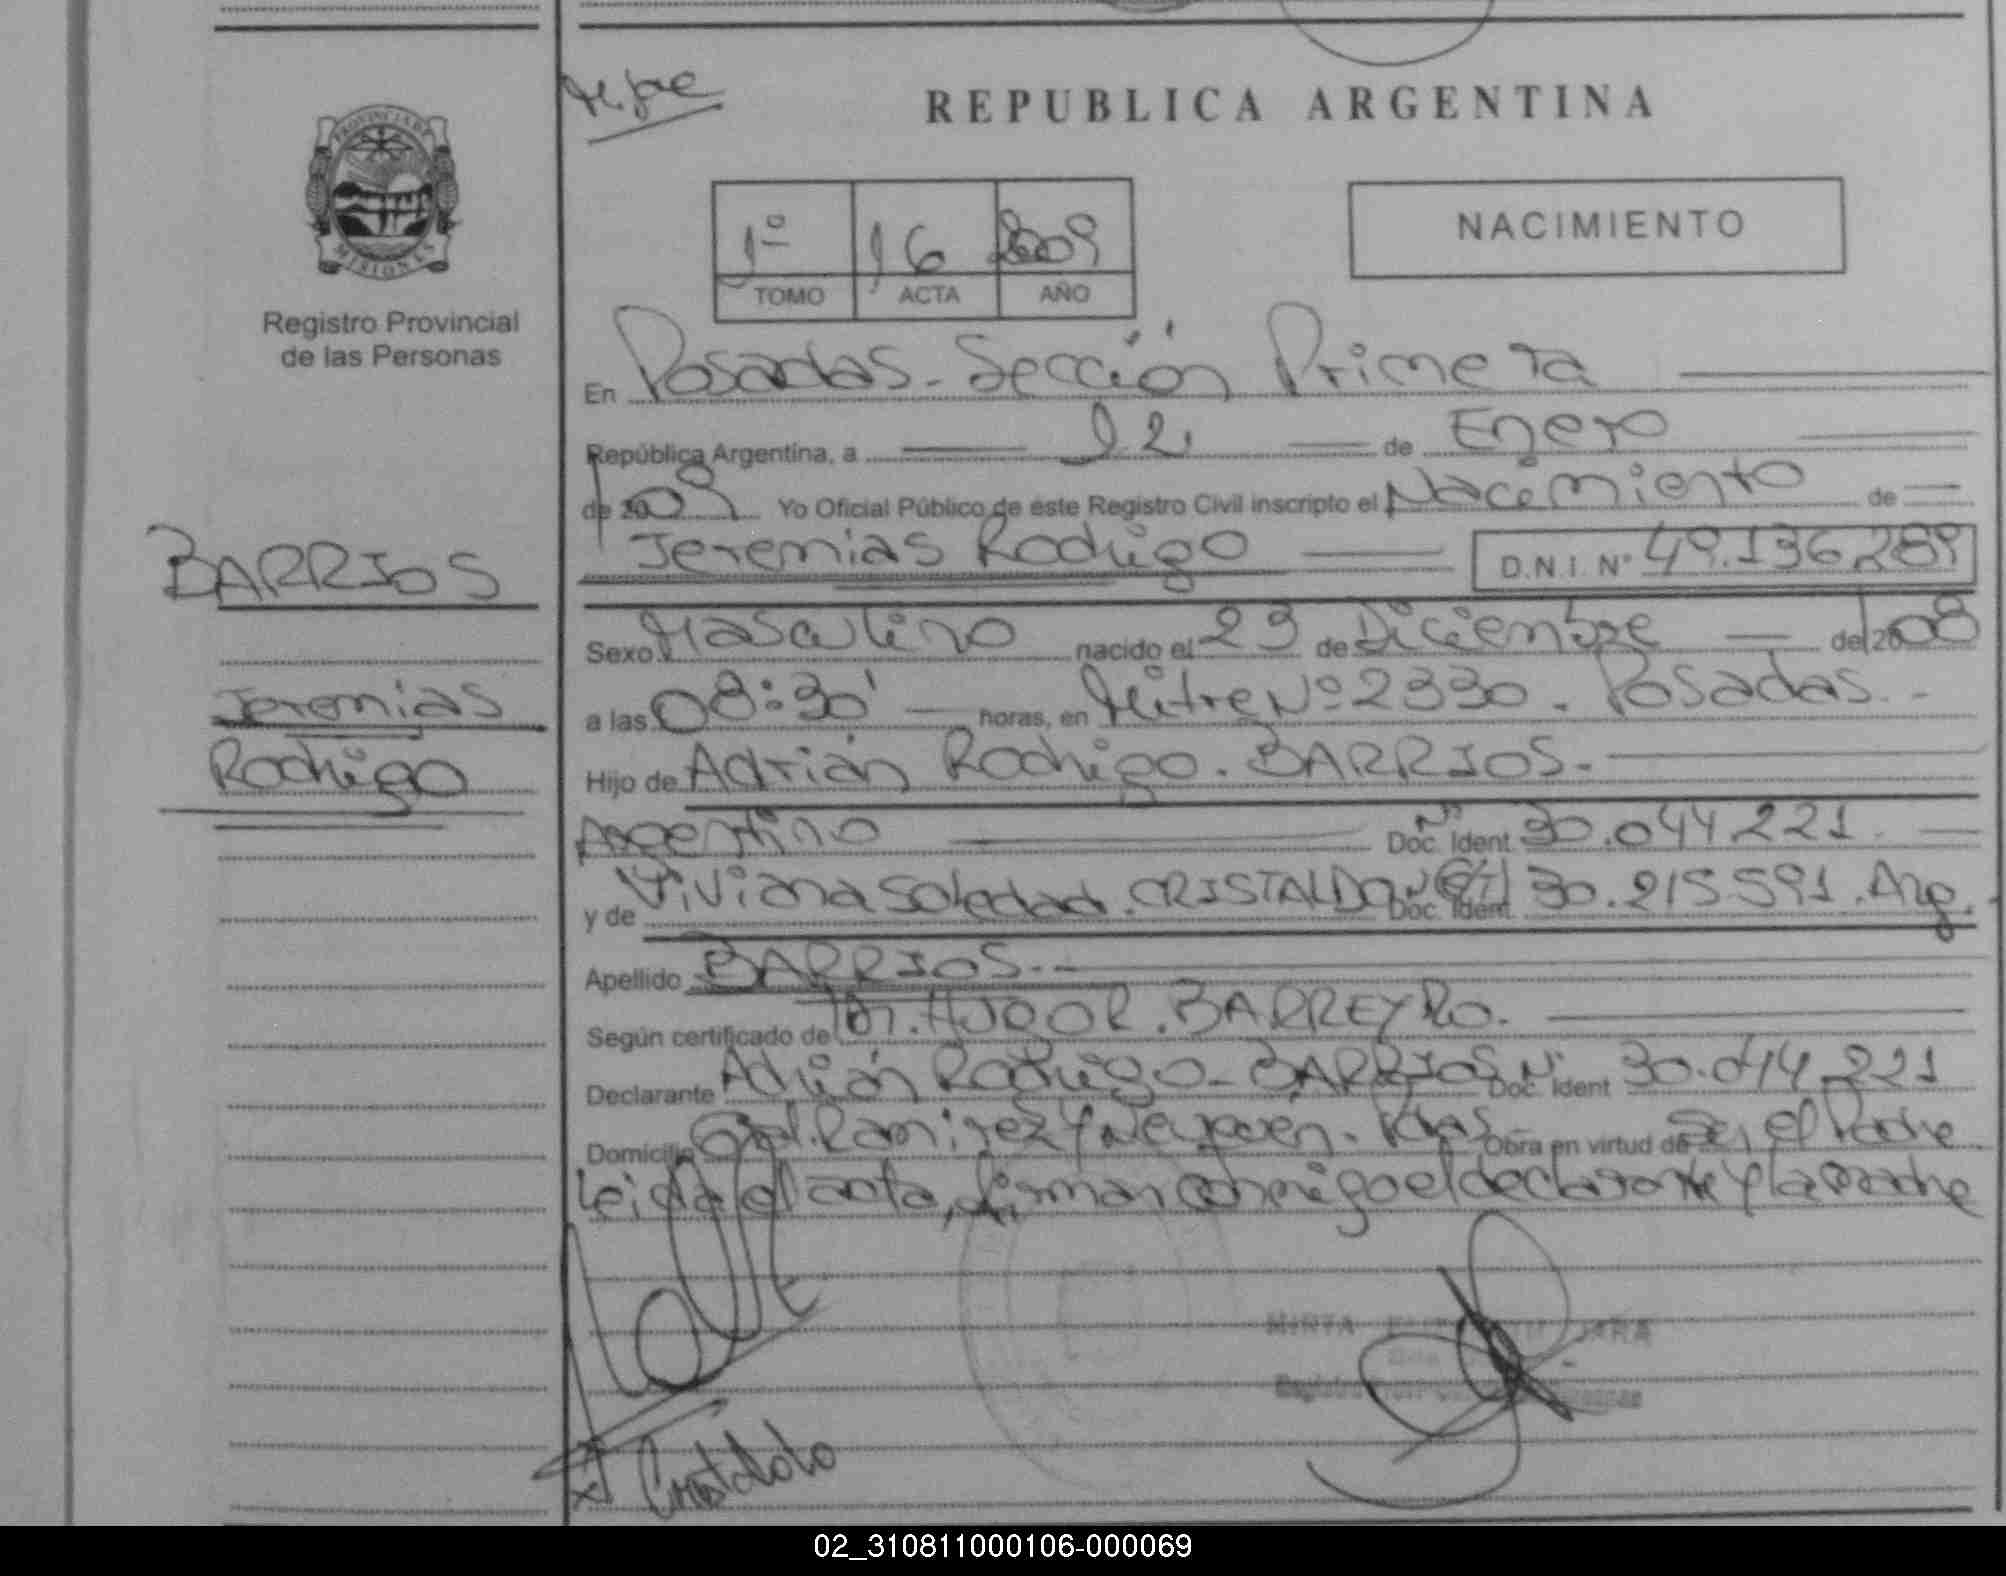 REPUBLICA ARGENTINA
PROVINCIA DE
MISIONES
Registro Provincial
de las Personas
1º 16 2009
TOMO ACTA AÑO
NACIMIENTO
En Posadas - Sección Primera
República Argentina, a 12 de Enero
de 2009 Yo Oficial Público de este Registro Civil inscripto el Nacimiento de
Jeremias Rodrigo D.N.I. Nº 49.136.289
BARRIOS
Jeremias
Rodrigo
Sexo Masculino nacido el 23 de Diciembre de 2008
a las 08:30' horas, en Mitre Nº 2330. Posadas.-
Hijo de Adrián Rodrigo. BARRIOS.-
Argentino Doc. Ident. Nº 30.044.221.
y de Viviana Soledad. CRISTALDO Doc. Ident. Nº 30.215.591. Arg.
Apellido BARRIOS.--
Según certificado de Dr. HUGO R. BARREYRO.
Declarante Adrián Rodrigo - BARRIOS Doc. Ident Nº 30.044.221
Domicilio Gral. Ramirez y Neuquén. Pdas- Obra en virtud de Ser el Padre
Leida el acta, firman conmigo el declarante y la madre
MIRTA JARA
Cristaldo
02_310811000106-000069